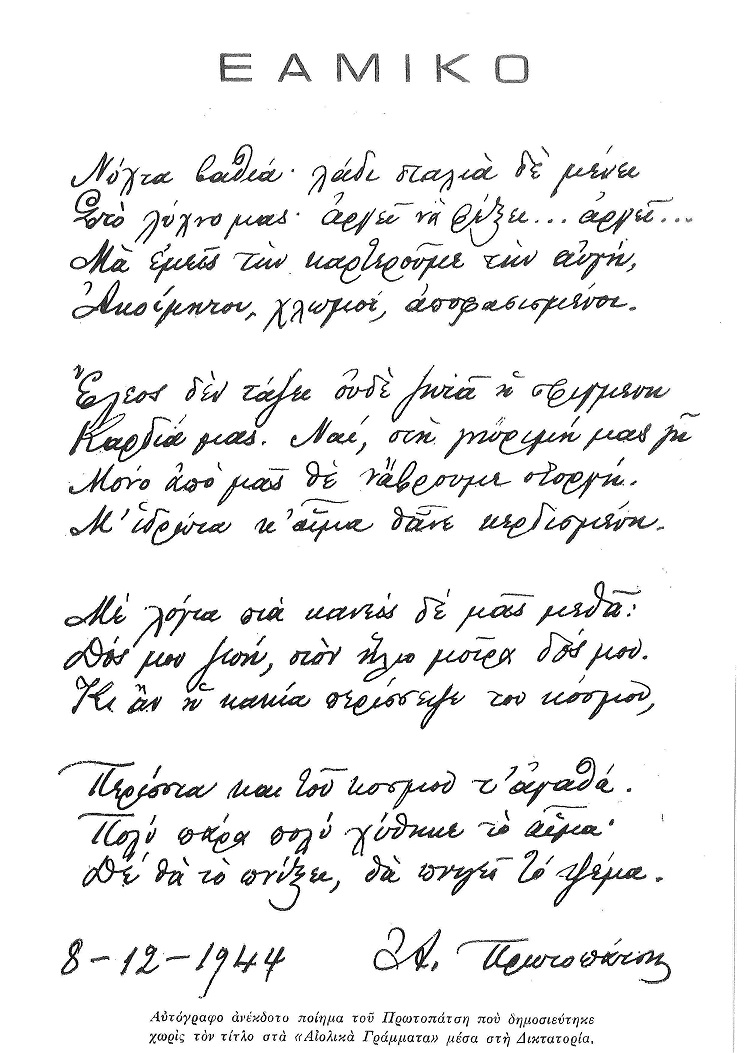 ΕΑΜΙΚΟ
Νύχτα βαθιά· λάδι σταλιὰ δὲ μένει
Στὸ λύχνο μας· ἀργεῖ νὰ φέξει... ἀργεῖ...
Μὰ ἐμεῖς τὴν καρτεροῦμε τὴν αὐγή,
Ἀκοίμητοι, χλωμοί, ἀποφασισμένοι.
Ἔλεος δὲν τάζει οὐδὲ ζητᾶ ἡ σφιγμένη
Καρδιά μας. Ναί, στὴ γνώριμή μας γῆ
Μόνο ἀπὸ μᾶς θὲ νἄβρουμε στοργή.
Μ' ἱδρώτα κ' αἷμα θἆνε κερδισμένη.
Μὲ λόγια πιὰ κανεὶς δὲ μᾶς μεθᾶ:
Δός μου ζωή, στὸν ἥλιο μοῖρα δός μου.
Κι ἂν ἡ κακία περίσσεψε του κόσμου,
Περίσσια και τοῦ κοσμου τ' ἀγαθά.
Πολύ πάρα πολύ χύθηκε τὸ αἷμα·
Δέ θὰ τὸ πνίξει, θὰ πνιγεῖ τό ψέμα.
8-12-1944 Α. Πρωτοπάτση
Αὐτόγραφο ἀνέκδοτο ποίημα τοῦ Πρωτοπάτση ποὺ δημοσιεύτηκε
χωρὶς τὸν τίτλο στὰ «Αἰολικὰ Γράμματα» μέσα στὴ Δικτατορία.